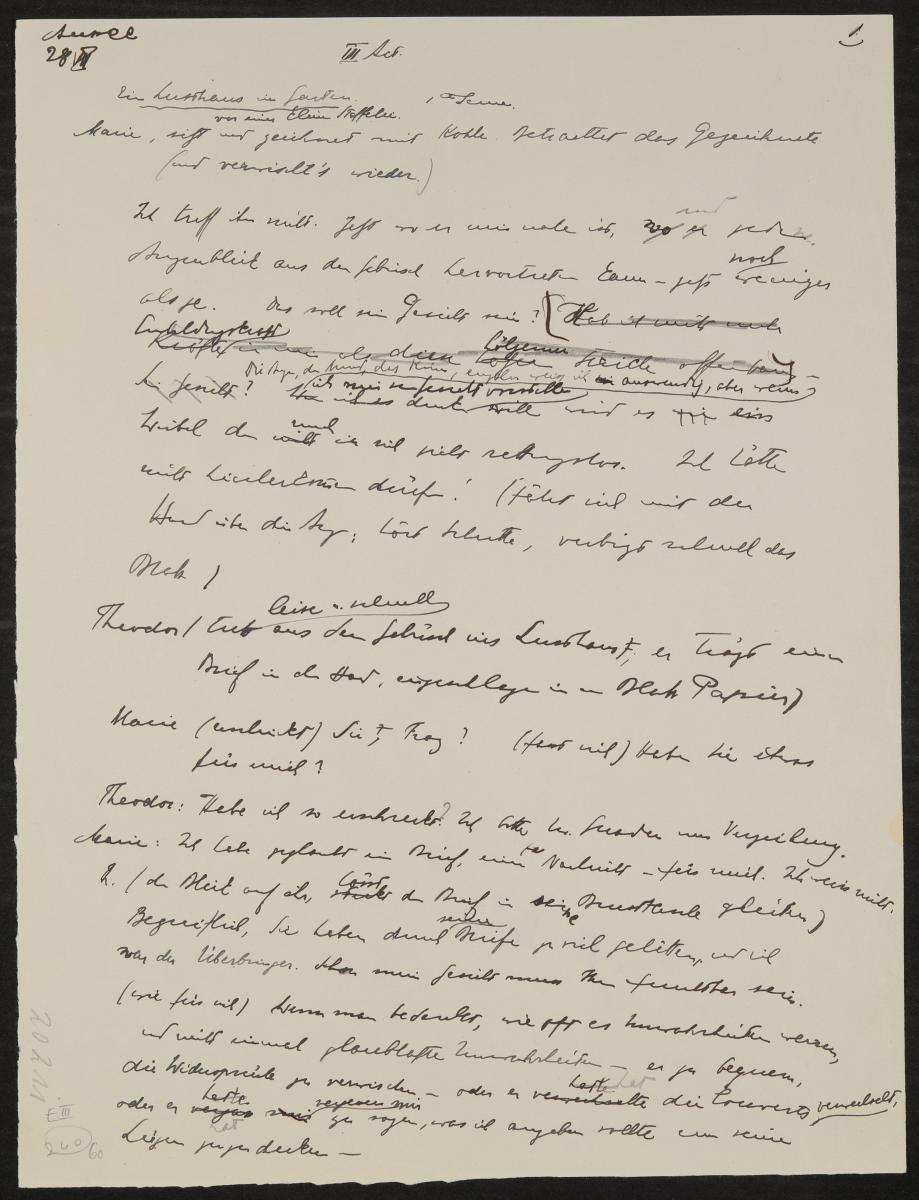 Aussee
28 VII
III Act.
1.
Ein Lusthaus im Garten. 1te Scene.
vor einer kleinen Staffelei.
Marie, sitzt und zeichnet mit Kohle. betrachtet das Gezeichnete
(und verwischt's wieder.)
Ich treff ihn nicht. Jetzt wo er mir nahe ist, wo er jeden
und
Augenblick aus dem Gebüsch hervortreten kann – jetzt weniger
noch
als je. Das soll sein Gesicht sein? Hab ich nicht mehr
Einbildungskraft
Kräfte in mir als diese
hölzerne
Striche offenbaren
Die Augen, der Mund, das Kinn, einzeln weiss ich auswendig, aber wenn
ein Gesicht? ich mir sein Gesicht vorstellen will wird es wie eins
Wirbel der mich in sich zieht rettungslos. Ich hätte
nicht hierherkommen dürfen! (fährt sich mit der
Hand über die Augen, hört Schritte, verbirgt schnell das
Blatt)
leise u. schnell
Theodor (tritt aus dem Gebüsch ins Lusthaus, er trägt einen
Brief in der Hand, eingeschlagen in ein Blatt Papier)
Marie (erschrickt) Sie, Franz? (fasst sich) Haben Sie etwas
für mich?
Theodor: Habe ich so erschreckt? Ich bitte Eu. Gnaden um Verzeihung.
Marie: Ich habe geglaubt ein Brief, eine Nachricht – für mich. Ich weiss nicht.
Th. (den Blick auf ihr, lässt den Brief in seine Brusttasche gleiten)
Begreiflich, Sie haben durch seine Briefe so viel gelitten, und ich
war der Überbringer. mein Gesicht muss Ihnen furchtbar sein.
(wie für sich) Wenn man bedenkt, wie oft es Unwahrheiten waren,
und nicht einmal glaubhafte Unwahrheiten – er zu bequem,
die Widersprüche zu verwischen – oder er hatte die Couverts verwechselt,
oder er hatte vergessen mir zu sagen, was ich angeben sollte um seine
Lügen zuzudecken –
20211
E III
240
60